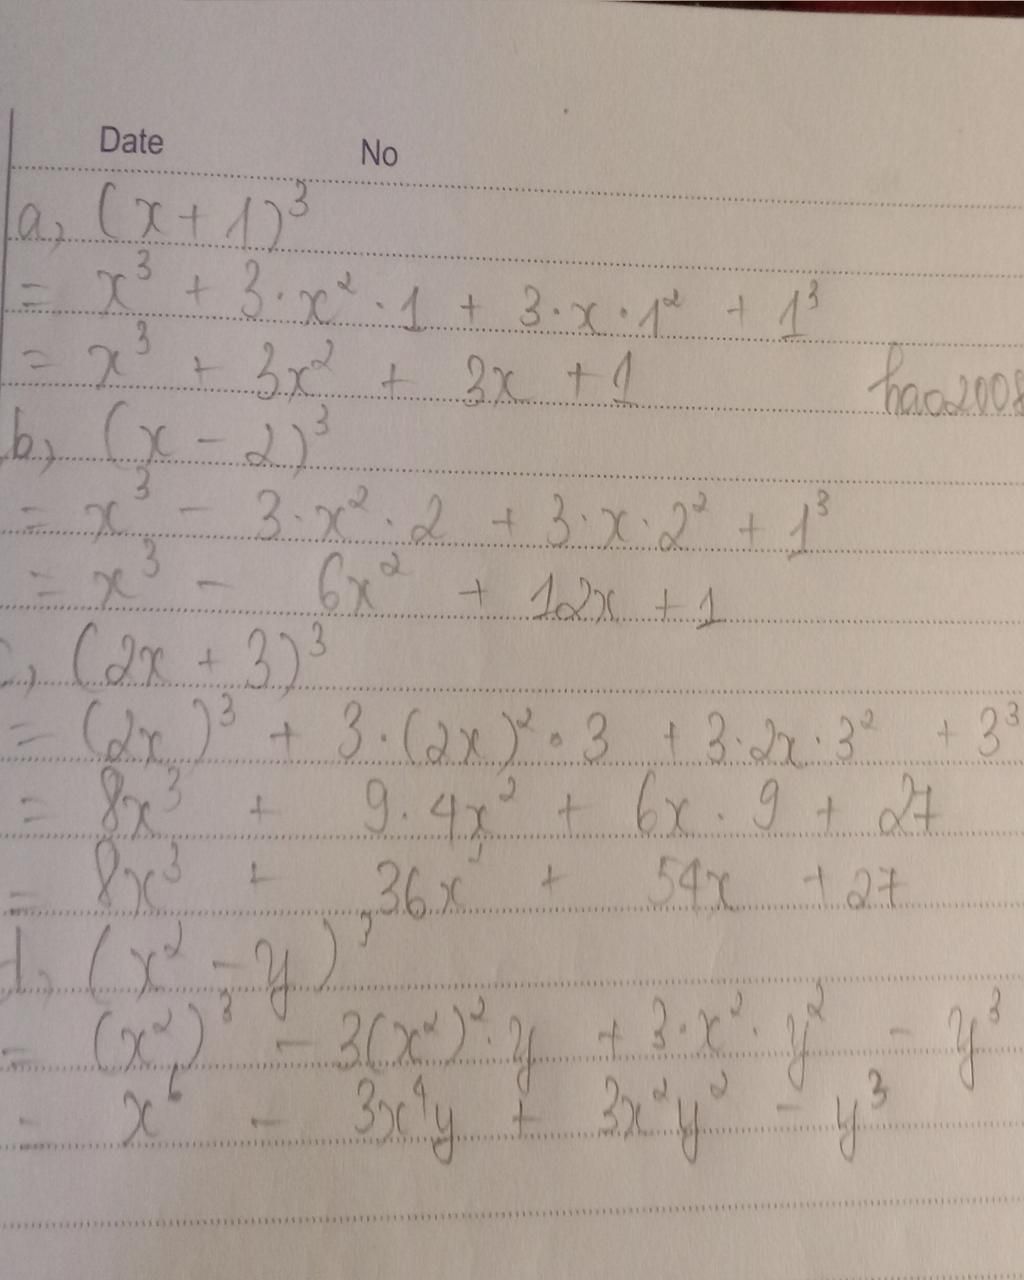 Date No
a, (x + 1)³
= x³ + 3·x²·1 + 3·x·1² + 1³
= x³ + 3x² + 3x + 1
hao2008
b, (x - 2)³
= x³ - 3·x²·2 + 3·x·2² + 1³
= x³ - 6x² + 12x + 1
c, (2x + 3)³
= (2x)³ + 3·(2x)²·3 + 3·2x·3² + 3³
= 8x³ + 9·4x² + 6x·9 + 27
= 8x³ + 36x² + 54x + 27
d, (x² - y)³
= (x²)³ - 3(x²)²·y + 3·x²·y² - y³
= x⁶ - 3x⁴y + 3x²y² - y³